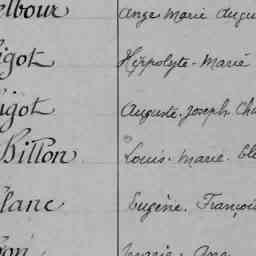 elbour Ange Marie Augu
igot Hyppolyte. Marie
igot Auguste. Joseph. Cha
Billon Louis. Marie. Elé
lanc Eugène. Françoi
Marie. Ange